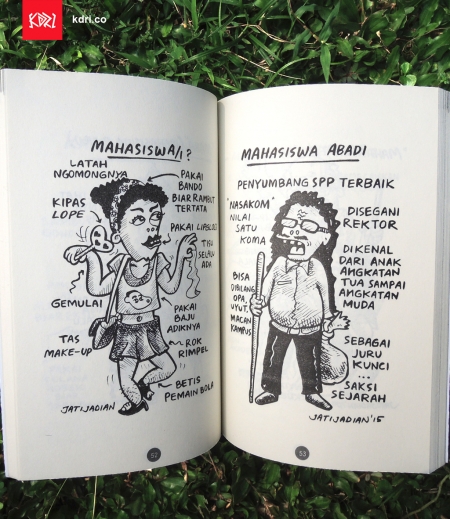 KDRI
kdri.co
MAHASISWA/I?
LATAH
NGOMONGNYA
PAKAI
BANDO
BIAR RAMBUT
TERTATA
KIPAS
LOPE
PAKAI LIPGLOSS
TISU
SELALU
ADA
GEMULAI
PAKAI
BAJU
ADIKNYA
TAS
MAKE-UP
ROK
RIMPEL
BETIS
PEMAIN BOLA
JATIJADIAN
52
MAHASISWA ABADI
PENYUMBANG SPP TERBAIK
"NASAKOM"
NILAI
SATU
KOMA
DISEGANI
REKTOR
DIKENAL
DARI ANAK
ANGKATAN
TUA SAMPAI
ANGKATAN
MUDA
BISA
DIBILANG
OPA,
UYUT,
MACAN
KAMPUS
SEBAGAI
JURU
KUNCI
...
SAKSI
SEJARAH
JATIJADIAN'15
53